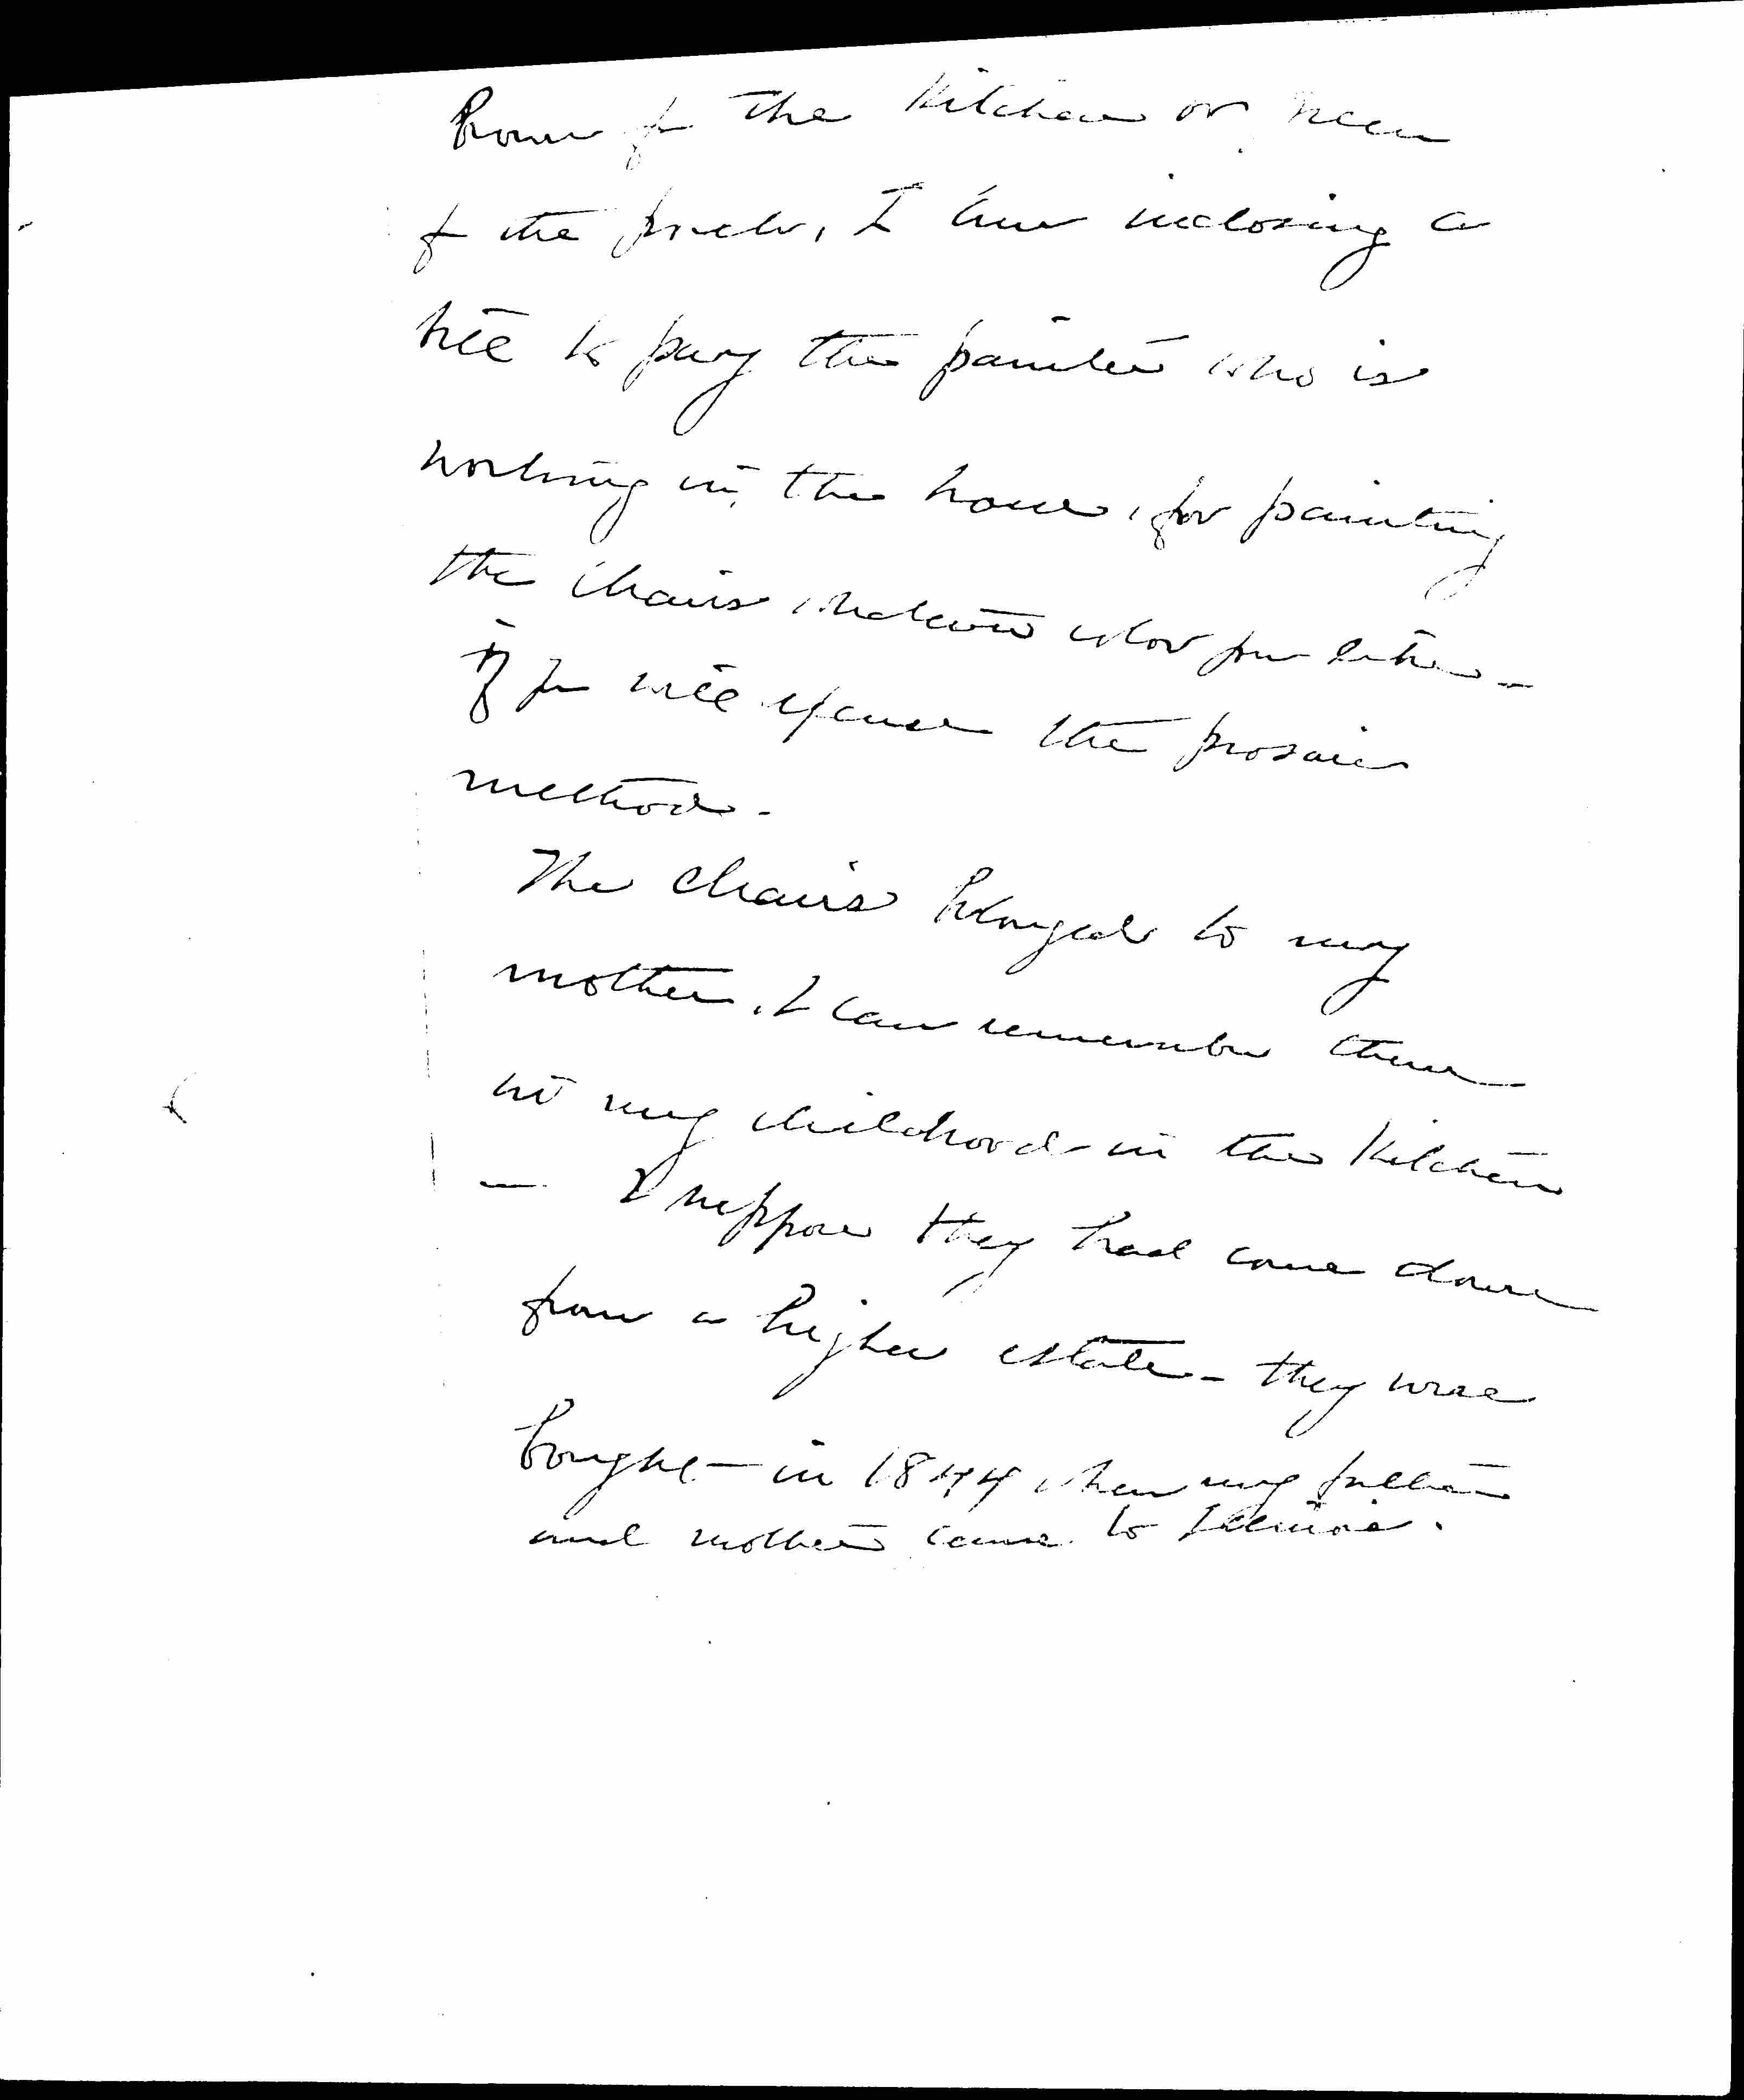 house for the kitchen or even
for the porch. I am inclosing a
bill to pay the painter who is
working in the house, for painting
the chairs whatever color you like -
if you will excuse the prosaic
method.
The chairs belonged to my
mother. I can remember them
in my childhood in the kitchen
- I suppose they had come down
from a higher estate - they were
bought in 1844 when my father
and mother came to Illinois.